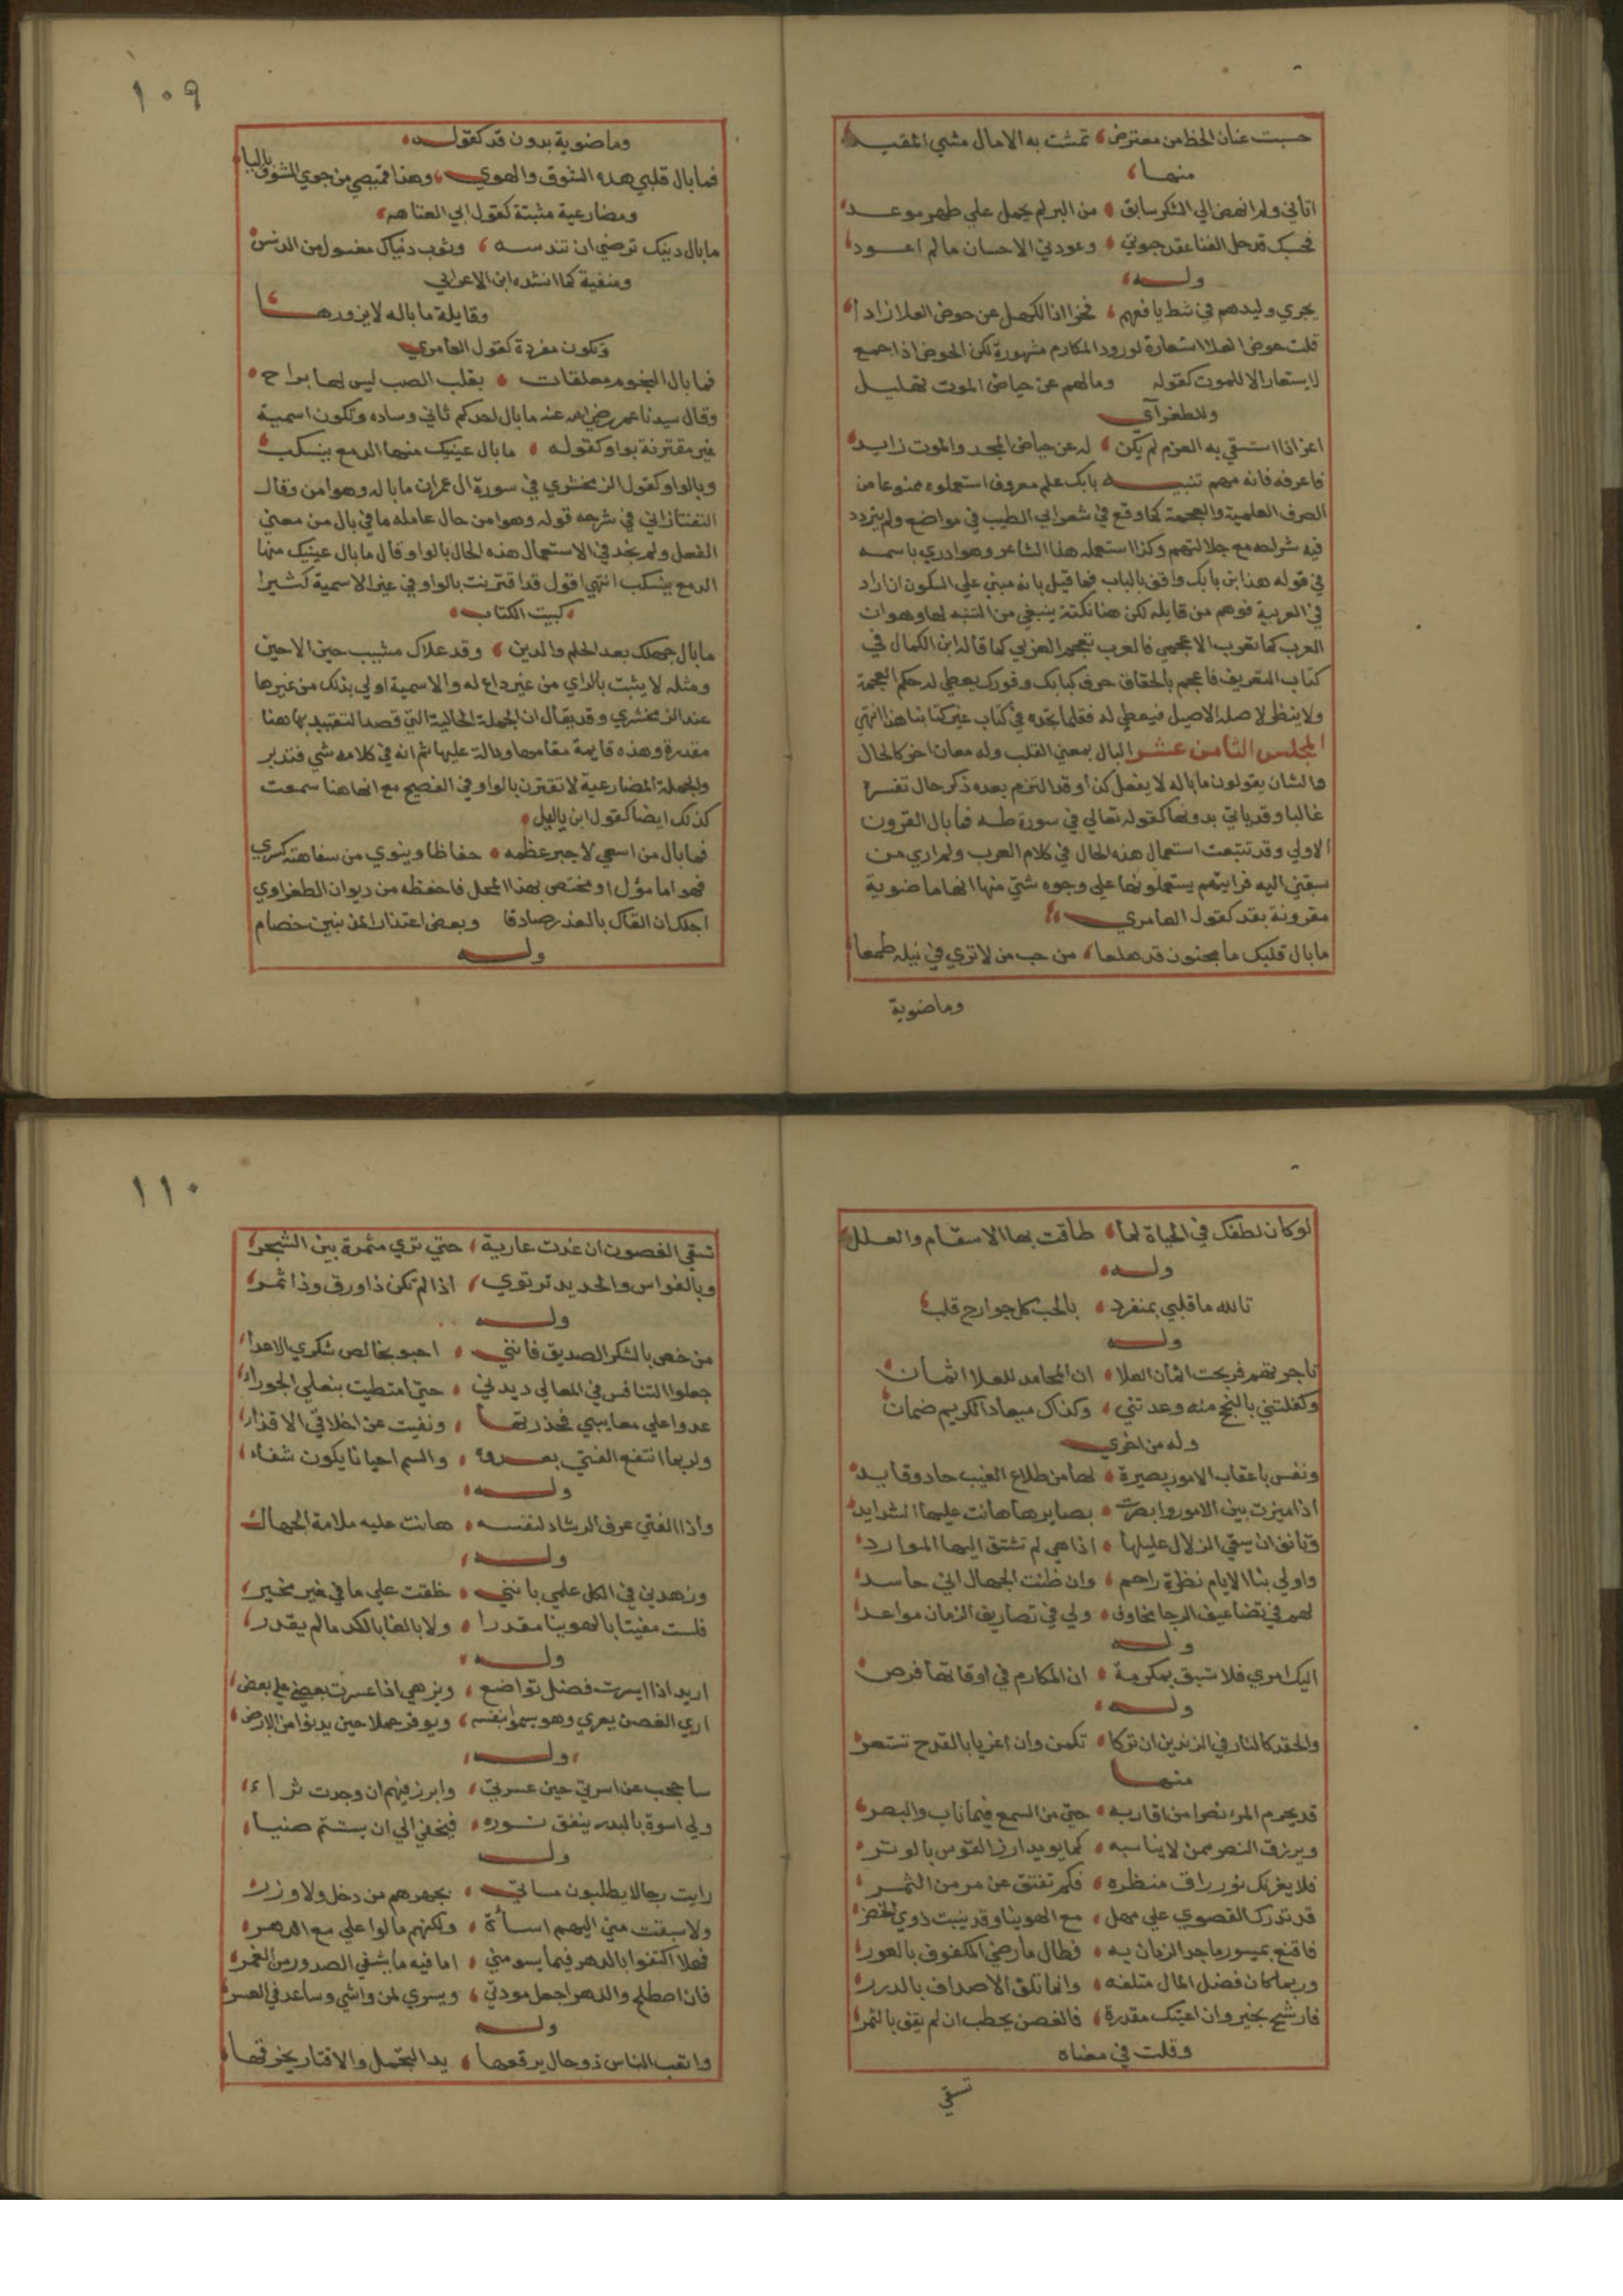 حسبت عنان الحظ من معترض تمشت به الامال مشي المقيد
منها
اتاني ولم انهض الي الشكر سابق من البر لم يحمل علي ظهر موعد
فحسبك قد حل الغنا عقد حبوتي وعودتي الاحسان مالم اعود
وله
يجري وليدهم في شط يافعهم فخرا اذا الكهل عن حوض العلا زادا
قلت حوض العلا استعارة لورود المكارم مشهورة لكن الحوض اذا جمع
لا يستعار الا للموت كقوله ومالهم عن حياض الموت تهليل
وللطغرآي
اعز اذا استسقي به العزم لم يكن له عن حياض المجد والموت زايد
فاعرفه فانه مهم تنبيه بابك علم معروف استعملوه ممنوعا من
الصرف للعلمية والعجمة كما وقع في شعر ابي الطيب في مواضع ولم يتردد
فيه شراحه مع جلالتهم وكذا استعمله هذا الشاعر وهو ادري باسمه
في قوله هذا ابن بابك واقف بالباب فما قيل بانه مبني علي السكون ان اراد
في العربية فوهم من قايله لكن هنا نكتة ينبغي من التنبه لها وهو ان
العرب كما تعرب الاعجمي فالعرب تعجم العربي كما قاله ابن الكمال في
كتاب التعريف فاعجم بالحقاق حرف كبابك وفورك يعطي له حكم العجمة
ولا ينظر لاصله الاصيل فيعطي له فقلما تجده في كتاب غير كتابنا هذا انتهي
المجلس الثامن عشر البال بمعني القلب وله معان اخر كالحال
والشان يقولون ما باله لا يفعل كذا وقد التزم بعده ذكر حال تفسره
غالبا وقد ياتي بدونها كقوله تعالي في سورة طه فما بال القرون
الاولي وقد تتبعت استعمال هذه الحال في كلام العرب ولم اري من
سبقني اليه فرايتهم يستعملونها علي وجوه شتي منها انها ماضوية
مقرونة بقد كقول العامري
ما بال قلبك يا مجنون قد هلعا من حب من لا تري في نيله طمعا
وماضوية
١٠٩
وماضوية بدون قد كقوله
فما بال قلبي هده الشوق والهوي وهذا قميصي من جوي الشوق باليا
ومضارعية مثبتة كقول ابي العتاهه
ما بال دينك ترضي ان تدنسه وثوب دنياك مغسول من الدنس
ومنفية كما انشده ابن الاعرابي
وقايلة ما باله لا يزورها
وتكون مفردة كقول العامري
فما بال النجوم معلقات بقلب الصب ليس لها براح
وقال سيدنا عمر رضي الله عنه ما بال احدكم ثاني وساده وتكون اسمية
غير مقترنة بواو كقوله ما بال عينيك منها الدمع ينسكب
وبالواو كقول الزمخشري في سورة ال عمران ما باله وهو امن وقال
التفتازاني في شرحه قوله وهو امن حال عامله ما في بال من معني
الفعل ولم نجد في الاستعمال هذه الحال بالواو وقال ما بال عينيك منها
الدمع ينسكب انتهي اقول قد اقترنت بالواو في غير الاسمية كثيرا
كبيت الكتاب
ما بال جهلك بعد الحلم والدين وقد علاك مشيب حين لاحين
ومثله لا يثبت بالراي من غير داع له والاسمية اولي بذلك من غيرها
عند الزمخشري وقد يقال ان الجملة الحالية التي قصد التقييد بها هنا
مقدرة وهذه قايمة مقامها ودالة عليها ثم انه في كلامه شي فتدبر
والجملة المضارعية لا تقترن بالواو في الفصيح مع انها هنا سمعت
كذلك ايضا كقول ابن ياليل
فما بال من اسعي لاجبر عظمه حفاظا وينوي من سفاهته كسري
فهو اما مؤل او مختص بهذا المحل فاحفظه من ديوان الطغراوي
اجلك ان القاك بالعذر صادقا وبعض اعتذار المذنبين خصام
وله
لو كان لطفك في الحياة لما طاقت بها الاسقام والعلل
وله
تالله ما قلبي بمنفرد بالحب كل جوارح قلب
وله
تاجرتهم فربحت اثمان العلا ان المحامد للعلا اثمان
وكفلتني بالنجح منه وعدتني وكذاك ميعاد الكريم ضمان
وله من اخري
ونفس باعقاب الامور بصيرة لها من طلاع الغيب حاد وقايد
اذا ميزت بين الامور وابصرت بصايرها هانت عليها الشدايد
وتانف ان يسقي الزلال غليلها اذا هي لم تشتق اليها الموارد
واولي بنا الايام نظرة راحم وان ظنت الجهال اني حاسد
لهم في تضاعيف الرجا مخاوف ولي في تصاريف الزمان مواعد
وله
اليك امري فلا تسبق بمكرمة ان المكارم في اوقاتها فرص
وله
والحقد كالنار في الزندين ان تركا تكمن وان اغريا بالقدح تستعر
منها
قد يحرم المرء نصرا من اقاربه حتي من السمع فيما ناب والبصر
ويرزق النصر ممن لا يناسبه كما يويد ازر القوس بالوتر
فلا يغرنك نور راق منظره فكم تفتق عن مر من الثمر
قد تدرك القصوي علي مهل مع الهوينا وقد نيبت ذوي الخضر
فاقنع بميسور ما جد الزمان به فطال ما رضي المكفوف بالعور
وربما كان فضل المال متلفه وانما تلق الاصداف بالدرر
فارشح بخير وان اعيتك مقدرة فالغصن يحطب ان لم يقف بالثمر
وقلت في معناه
تسقي
١١٠
تسقي الغصون ان غدت عارية حتي تري مثمرة بين الشجر
وبالفواس والحديد ترتوي اذا لم تكن ذا ورق وذا ثمر
وله
من خص بالشكر الصديق فانني احبو بخالص شكري الاعدا
جعلوا التنافس في المعالي ديدني حتي امتطيت بنعلي الجوزا
عدوا علي معايبي فحذرتها ونفيت عن اخلاقي الاقذار
ولربما انتفع الفتي بعدوه والسم احيانا يكون شفاء
وله
واذا الفتي عرف الرشاد لنفسه هانت عليه ملامة الجهال
وله
وزهدني في الكل علمي بانني خلقت علي ما في غير مخير
فلست مفيتا بالهوينا مقدرا ولا بالغا بالكد مالم يقدر
وله
اريد اذا ايسرت فضل تواضع ويزهي اذا عسرت بعضي علي بعض
اري الغصن يعري وهو يسموا بنفسه ويوقر حملا حين يدنوا من الارض
وله
ساحجب عن اسرتي حين عسرتي وابرز فيهم ان وجدت ثراء
ولي اسوة بالبدر ينفق نوره فيخفي الي ان يستتم ضياء
وله
رايت رجالا يطلبون مساتي بجهرهم من دخل ولا وزر
ولا سبقت مني اليهم اساة ولكنهم مالوا علي مع الدهر
فهلا اكتفوا بالدهر فيما يسومني اما فيه ما يشفي الصدور من الغمر
فان اصطلح والدهر اجعل مودتي ويسري لمن واشي وساعد في العسر
وله
واتعب الناس ذو حال يرقعها يد التجمل والاقتار يخرقها